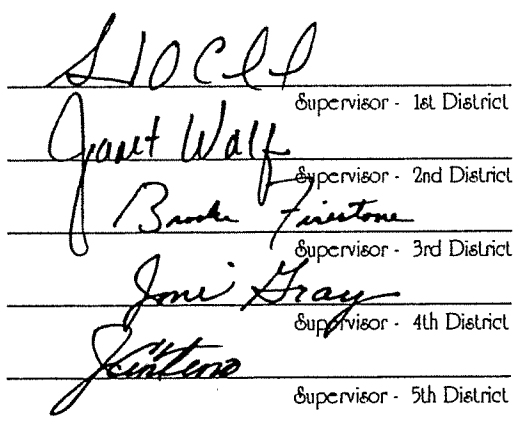 Supervisor - 1st District
Janet Wolf
Supervisor - 2nd District
Brooks Firestone
Supervisor - 3rd District
Joni Gray
Supervisor - 4th District
JCenteno
Supervisor - 5th District